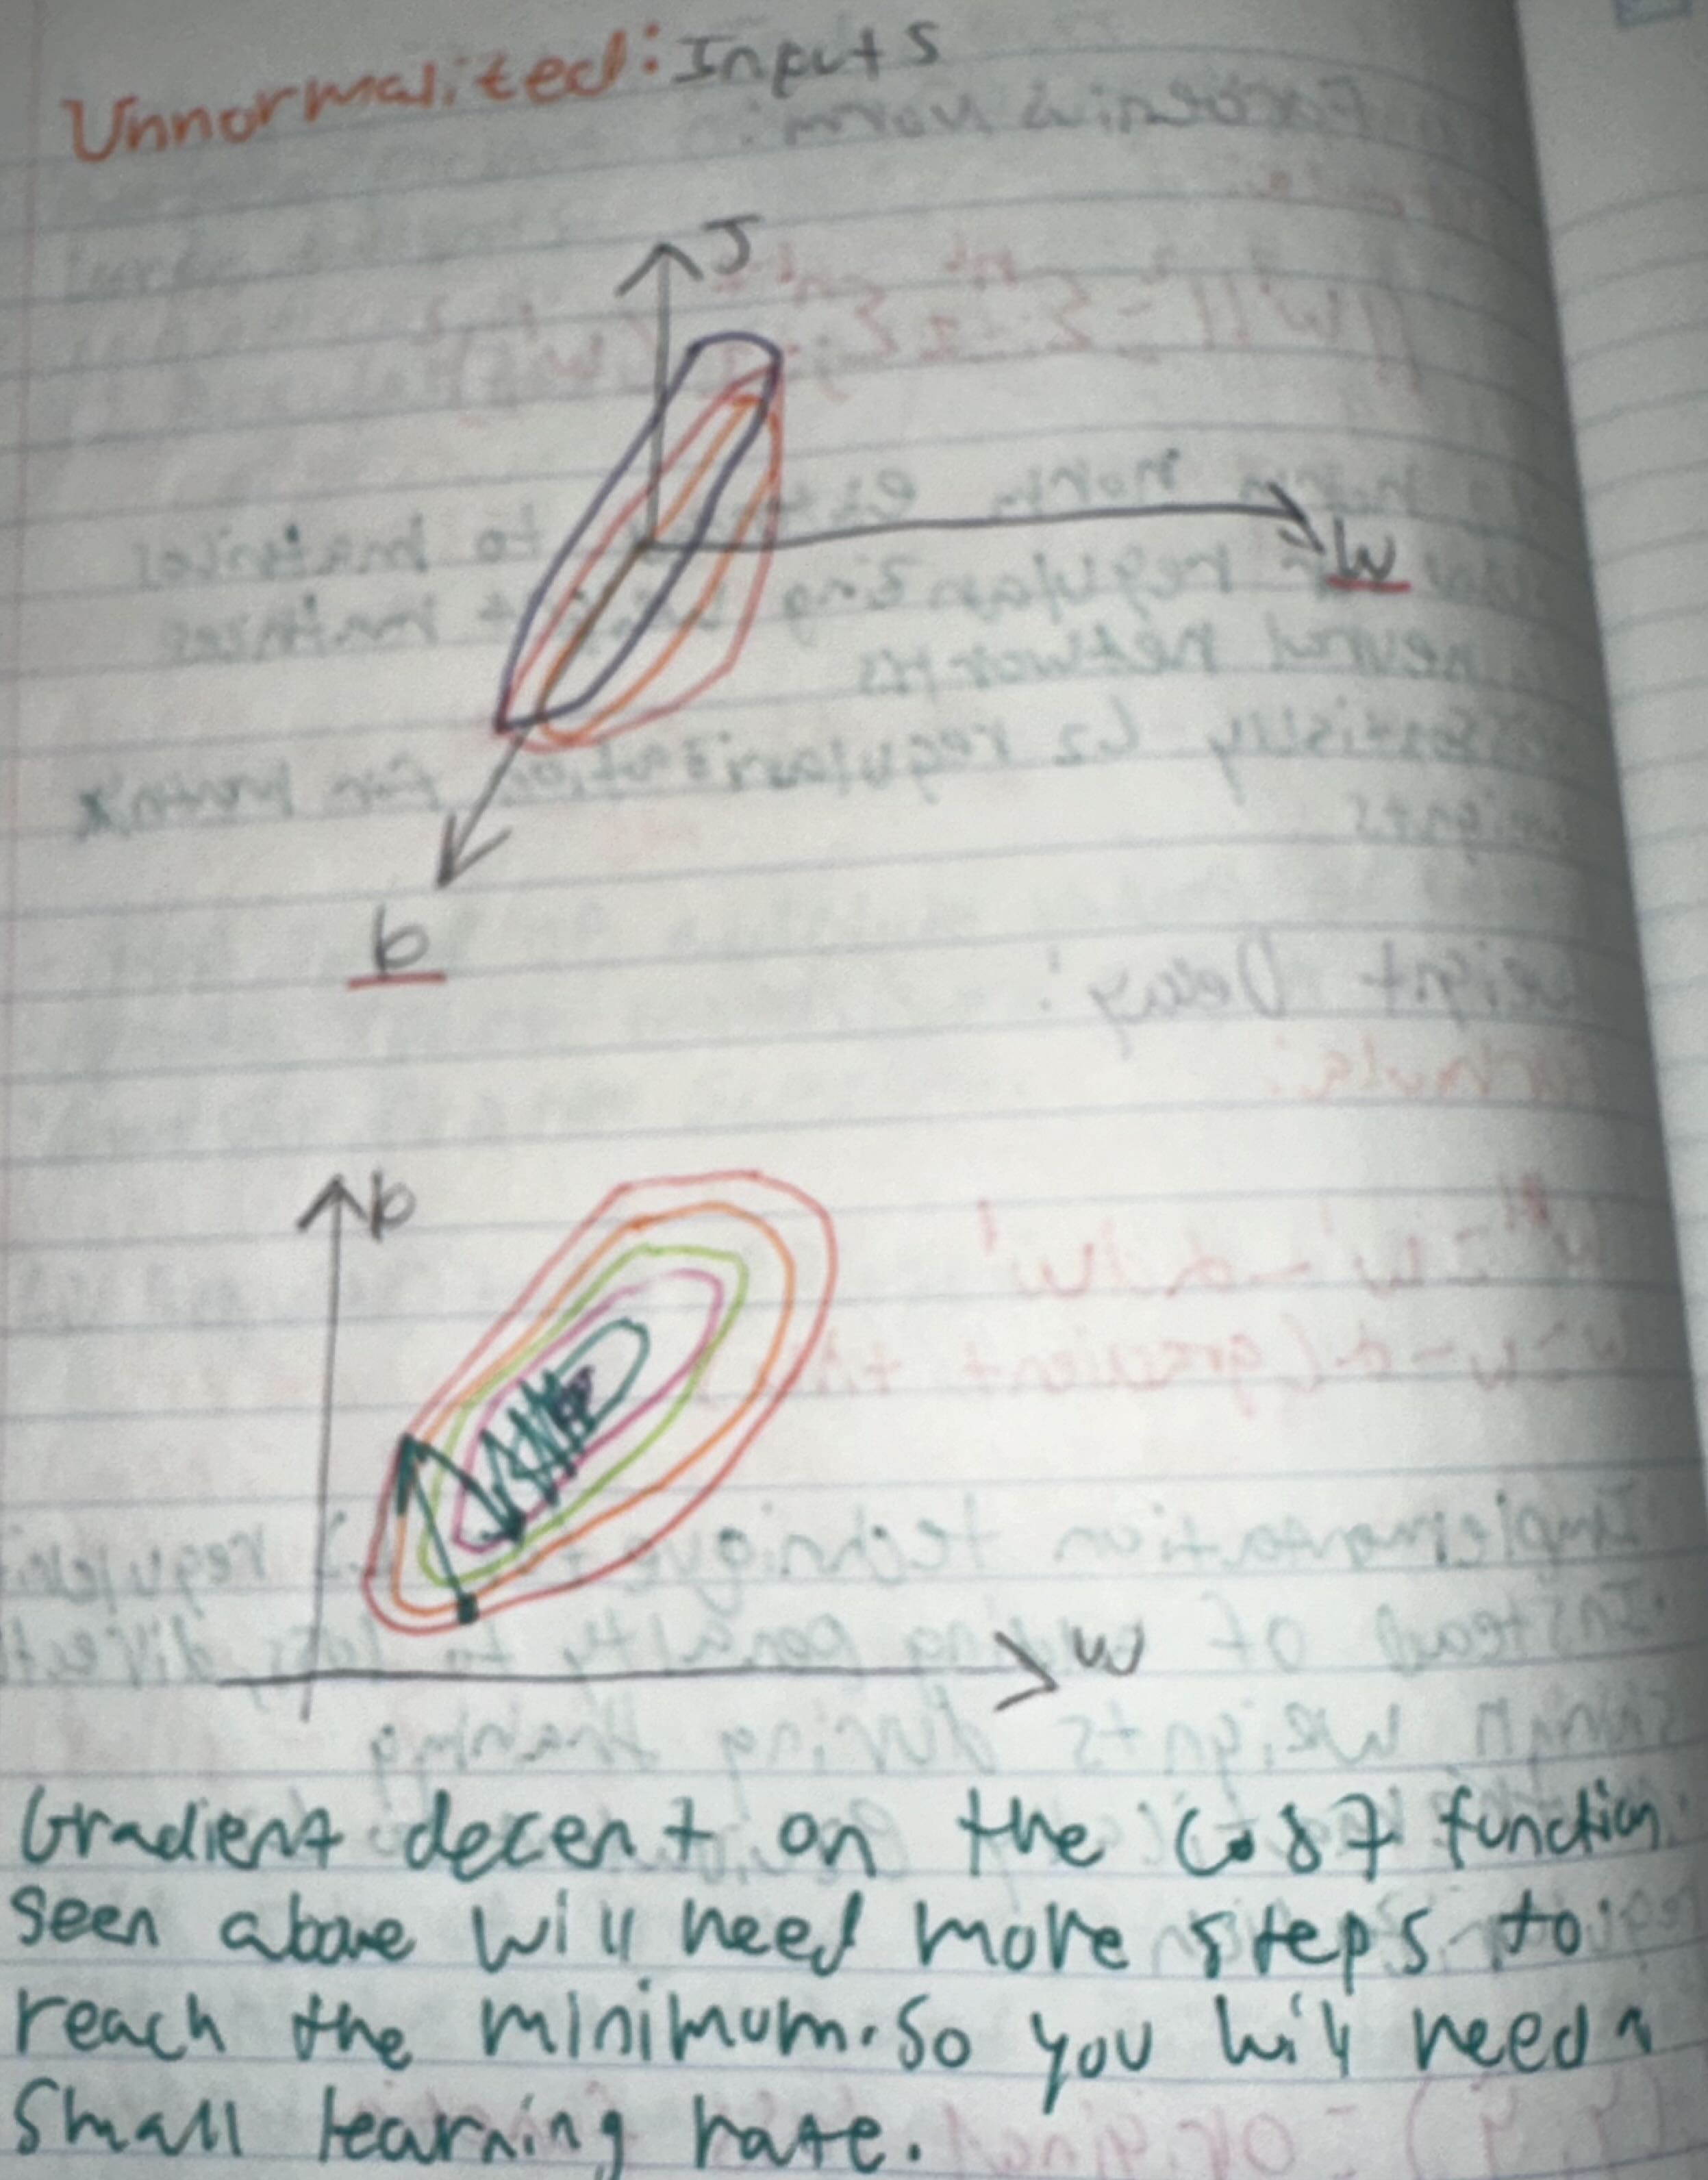 Unnormalized: Inputs
J
w
b
b
w
Gradient decent on the cost function
seen above will need more steps to
reach the minimum. So you will need a
small learning rate.